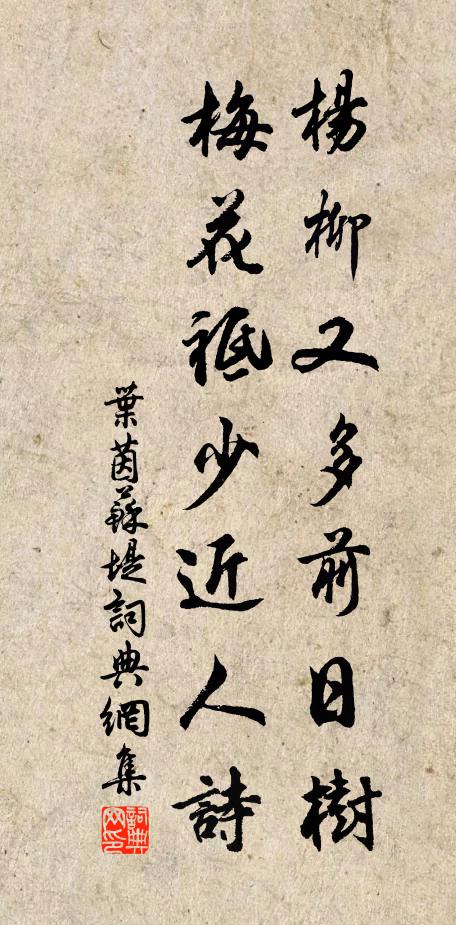 楊柳又多前日樹
梅花祗少近人詩
葉茵蘇堤詞典網集
詞典
网印